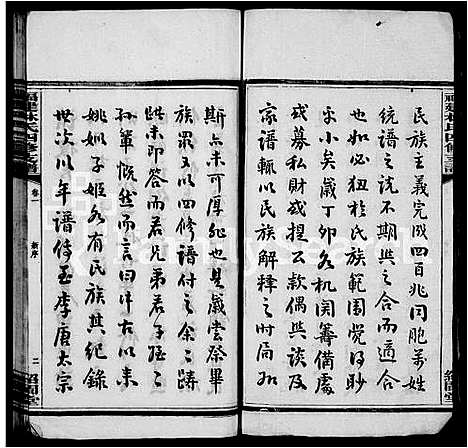 民族主義完成四百兆同胞萬姓
統譜之説不期與之合而適合
也如必狃於民族範圍覺得眇
乎小矣歲丁卯各機關籌備處
或募捐或款偶與談及
家譜輒以民族解釋之時局如
斯亦未可厚非也是歲嘗祭畢
族眾又以四修譜付之余余躊
躇未即答而君兄弟君子姪余
孫輩慨然而言曰中古以來
姚姒子姬各有民族其紀錄
世次以年譜係至李唐太宗
福建林氏四修支譜
卷一
新序
二
紹閩堂